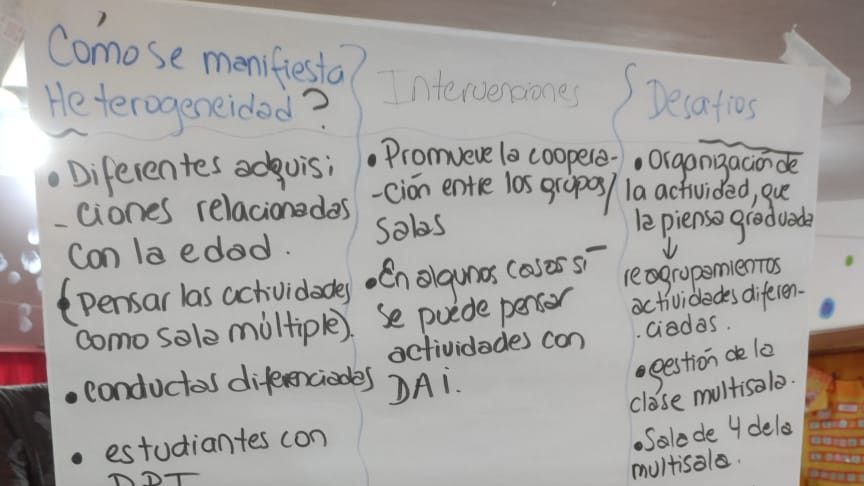 Cómo se manifiesta
Heterogeneidad?
• Diferentes adquisi
- ciones relacionadas
con la edad.
(pensar las actividades
como sala múltiple).
• conductas diferenciadas
• estudiantes con
Intervenciones
• Promueve la coopera-
-ción entre los grupos/
salas
• En algunos casos sí
se puede pensar
actividades con
DAI.
Desafios
• organización de
la actividad, que
la piensa graduada
↓
reagrupamientos
actividades diferen-
ciadas.
• gestión de la
clase multisala.
• Sala de 4 dela
multisala.